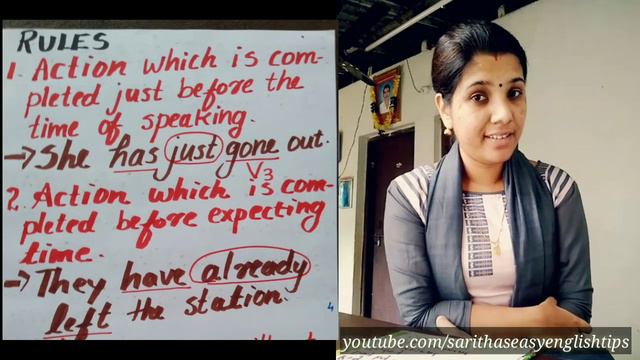 RULES
1. Action which is com-
pleted just before the
time of speaking.
→ She has just gone out.
V3
2. Action which is com-
pleted before expecting
time.
→ They have already
left the station.
4
youtube.com/sarithaseasyenglishtips